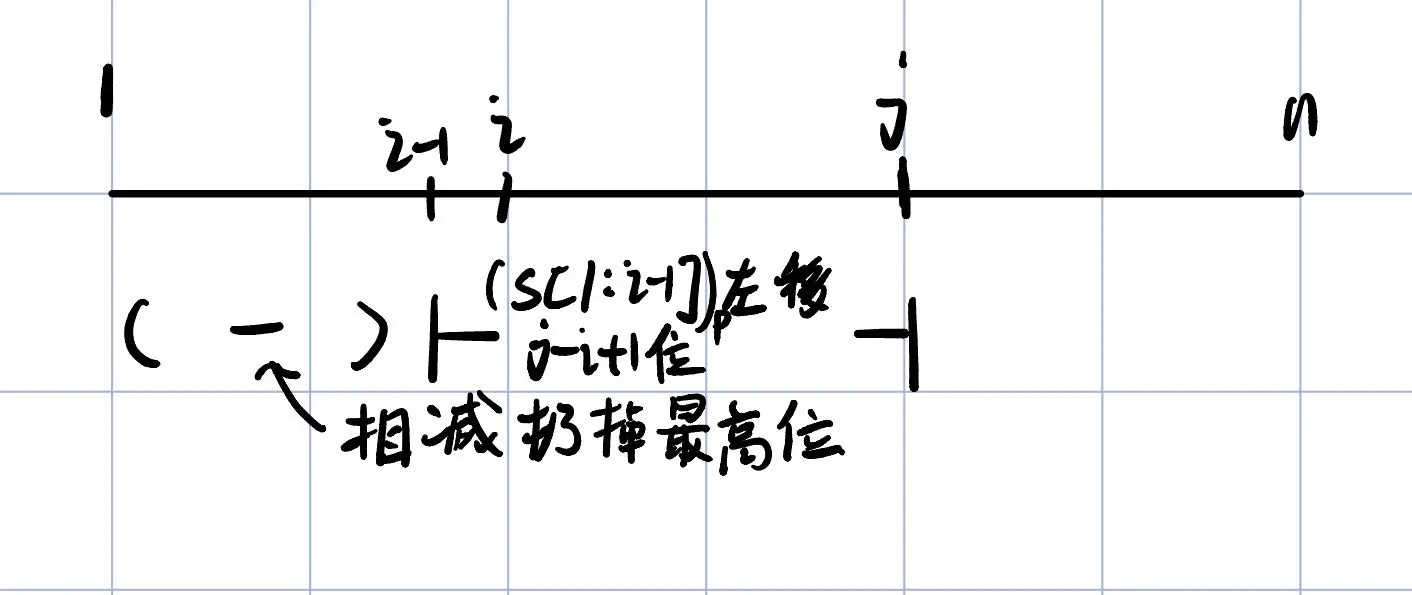 1 i-1 i j n
( - ) (S[1:i-1])p左移
j-i+1位
相减扔掉最高位